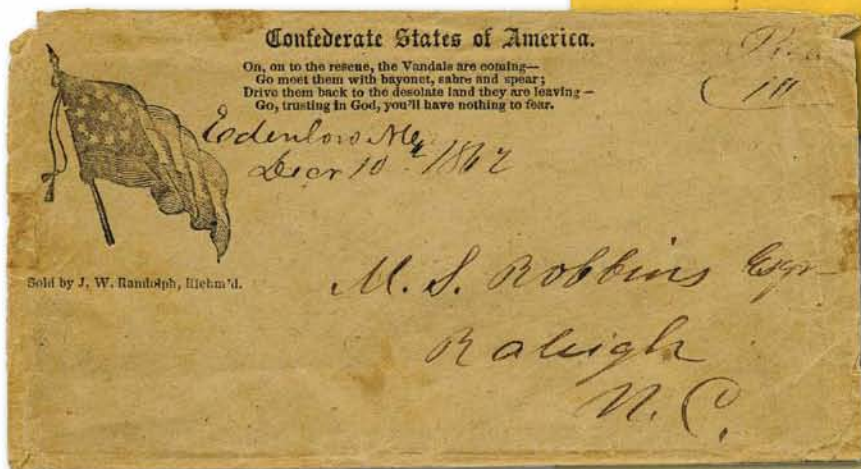 Confederate States of America.
On, on to the rescue, the Vandals are coming—
Go meet them with bayonet, sabre and spear;
Drive them back to the desolate land they are leaving—
Go, trusting in God, you'll have nothing to fear.
Decr 10th 1862
Sold by J. W. Randolph, Richm'd.
M. S. Robbins Esqr
Raleigh
N. C.